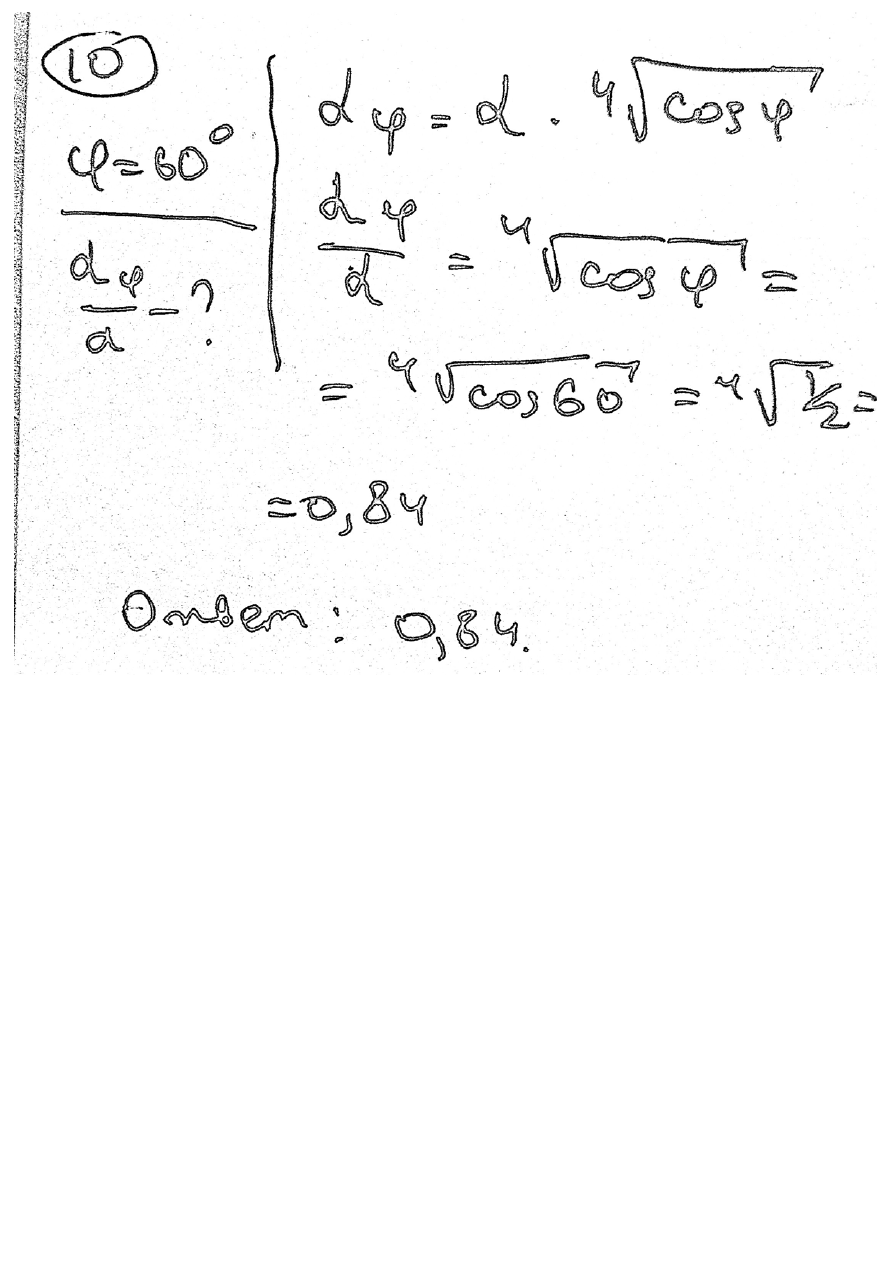 10
φ=60°
dφ/d - ?
dφ = d · ⁴√cos φ
dφ/d = ⁴√cos φ =
= ⁴√cos60 = ⁴√1/2 =
=0,84
Ответ: 0,84.